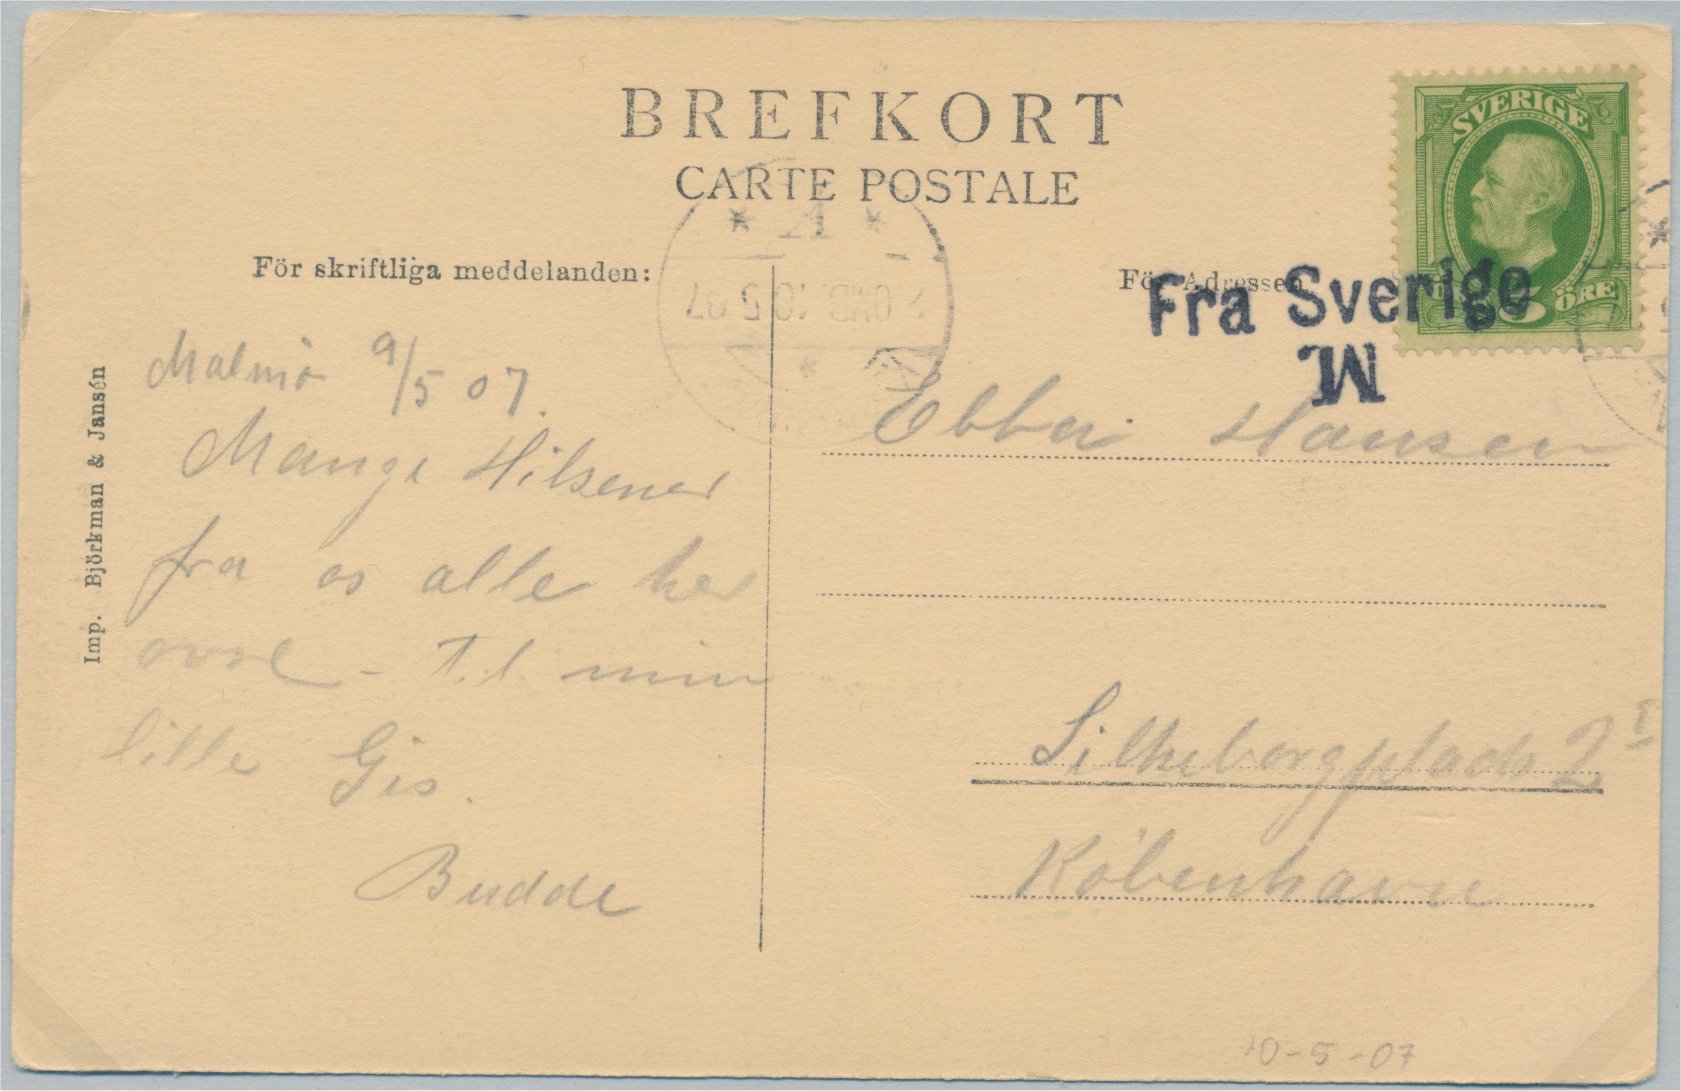 BREFKORT
CARTE POSTALE
För skriftliga meddelanden:
För Adressen
SVERIGE
5 ÖRE
Fra Sverige
M
10.5.07
Imp. Björkman & Jansén
Malmö 9/5 07.
Mange Hilsener
fra os alle her
ovre - til min
lille Gis.
Budde
Ebba Hansen
Silkeborgplads 2 I
København
10-5-07